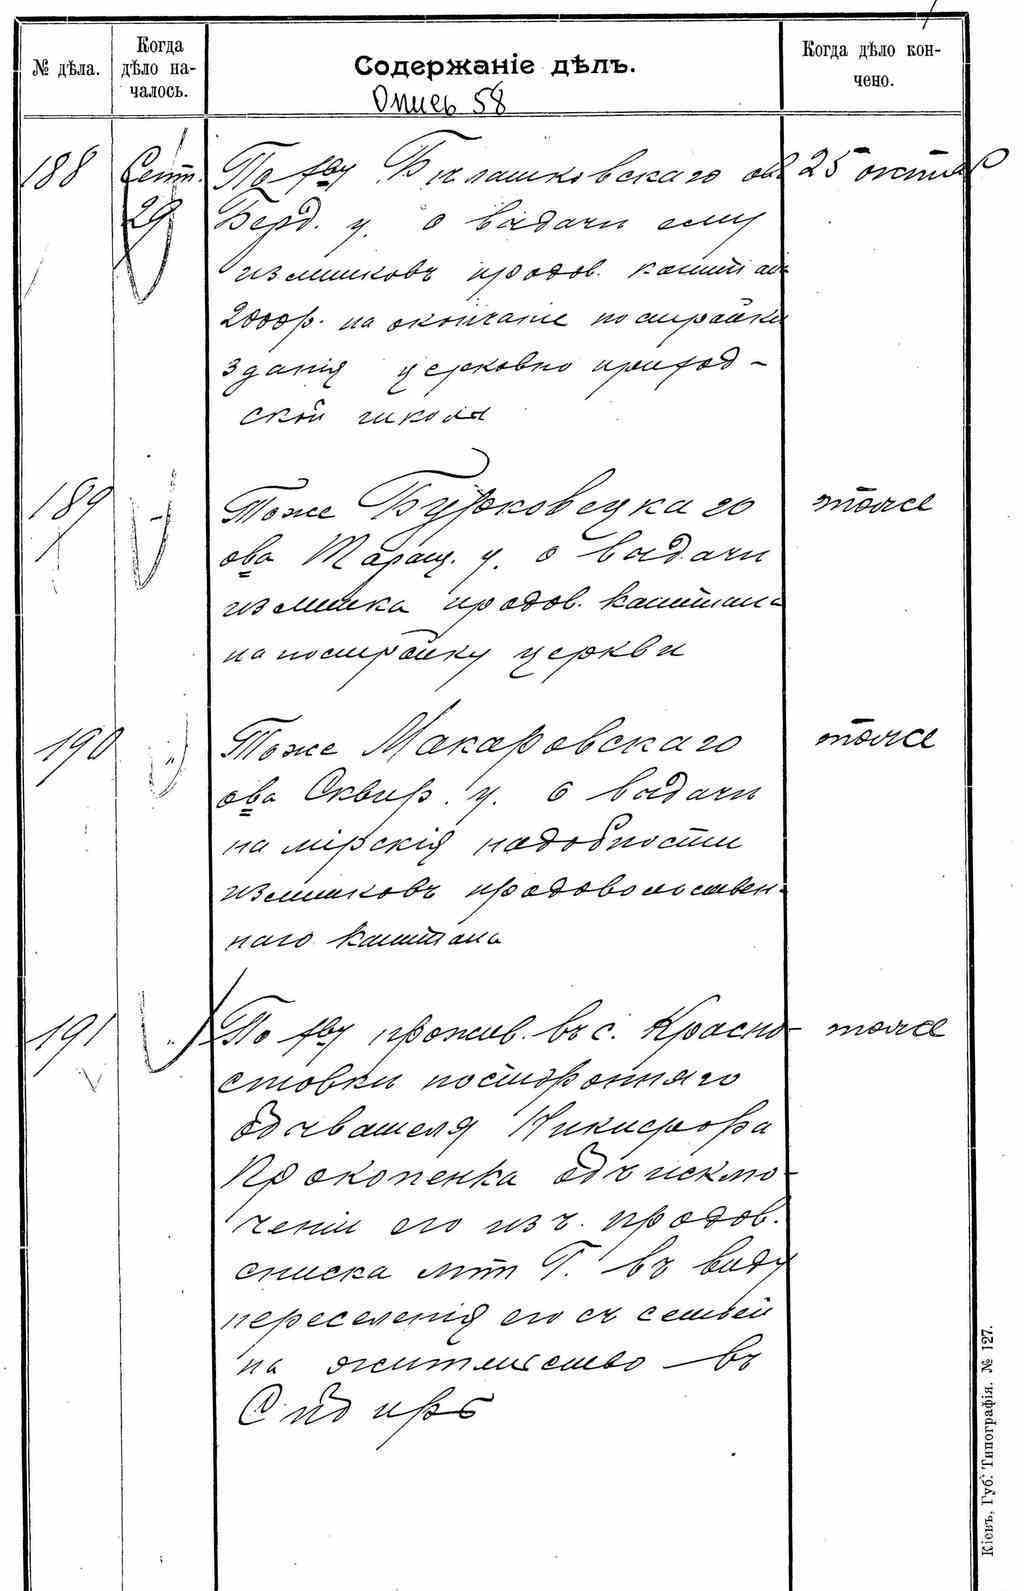 № дѣла.
Когда дѣло на-
чалось.
Содержаніе дѣлъ.
Когда дѣло кон-
чено.
Опись 58
188 Сент. 29
По Бѣлашковскаго 25 октяб
Берд. у. о выдачи ему
излишковъ продов. капитал
2000 р. на окончаніе постройки
зданія церковно приход-
ской школы
189
Тоже Бурковецкаго тоже
ова Таращ. у. о выдачи
излишка продов. капитала
на постройку церкви
190
Тоже Макаровскаго тоже
ова Сквир. у. о выдачи
на мірскія надобности
излишковъ продовольствен-
наго капитала
191
По прожив. въ с. Красно- тоже
ставки посторонняго
обывателя Никифора
Прокопенка объ исклю-
ченіи его изъ продов.
списка въ виду
переселенія его съ семьей
на жительство въ
Сибирь
Кіевъ, Губ. Типографія. № 127.